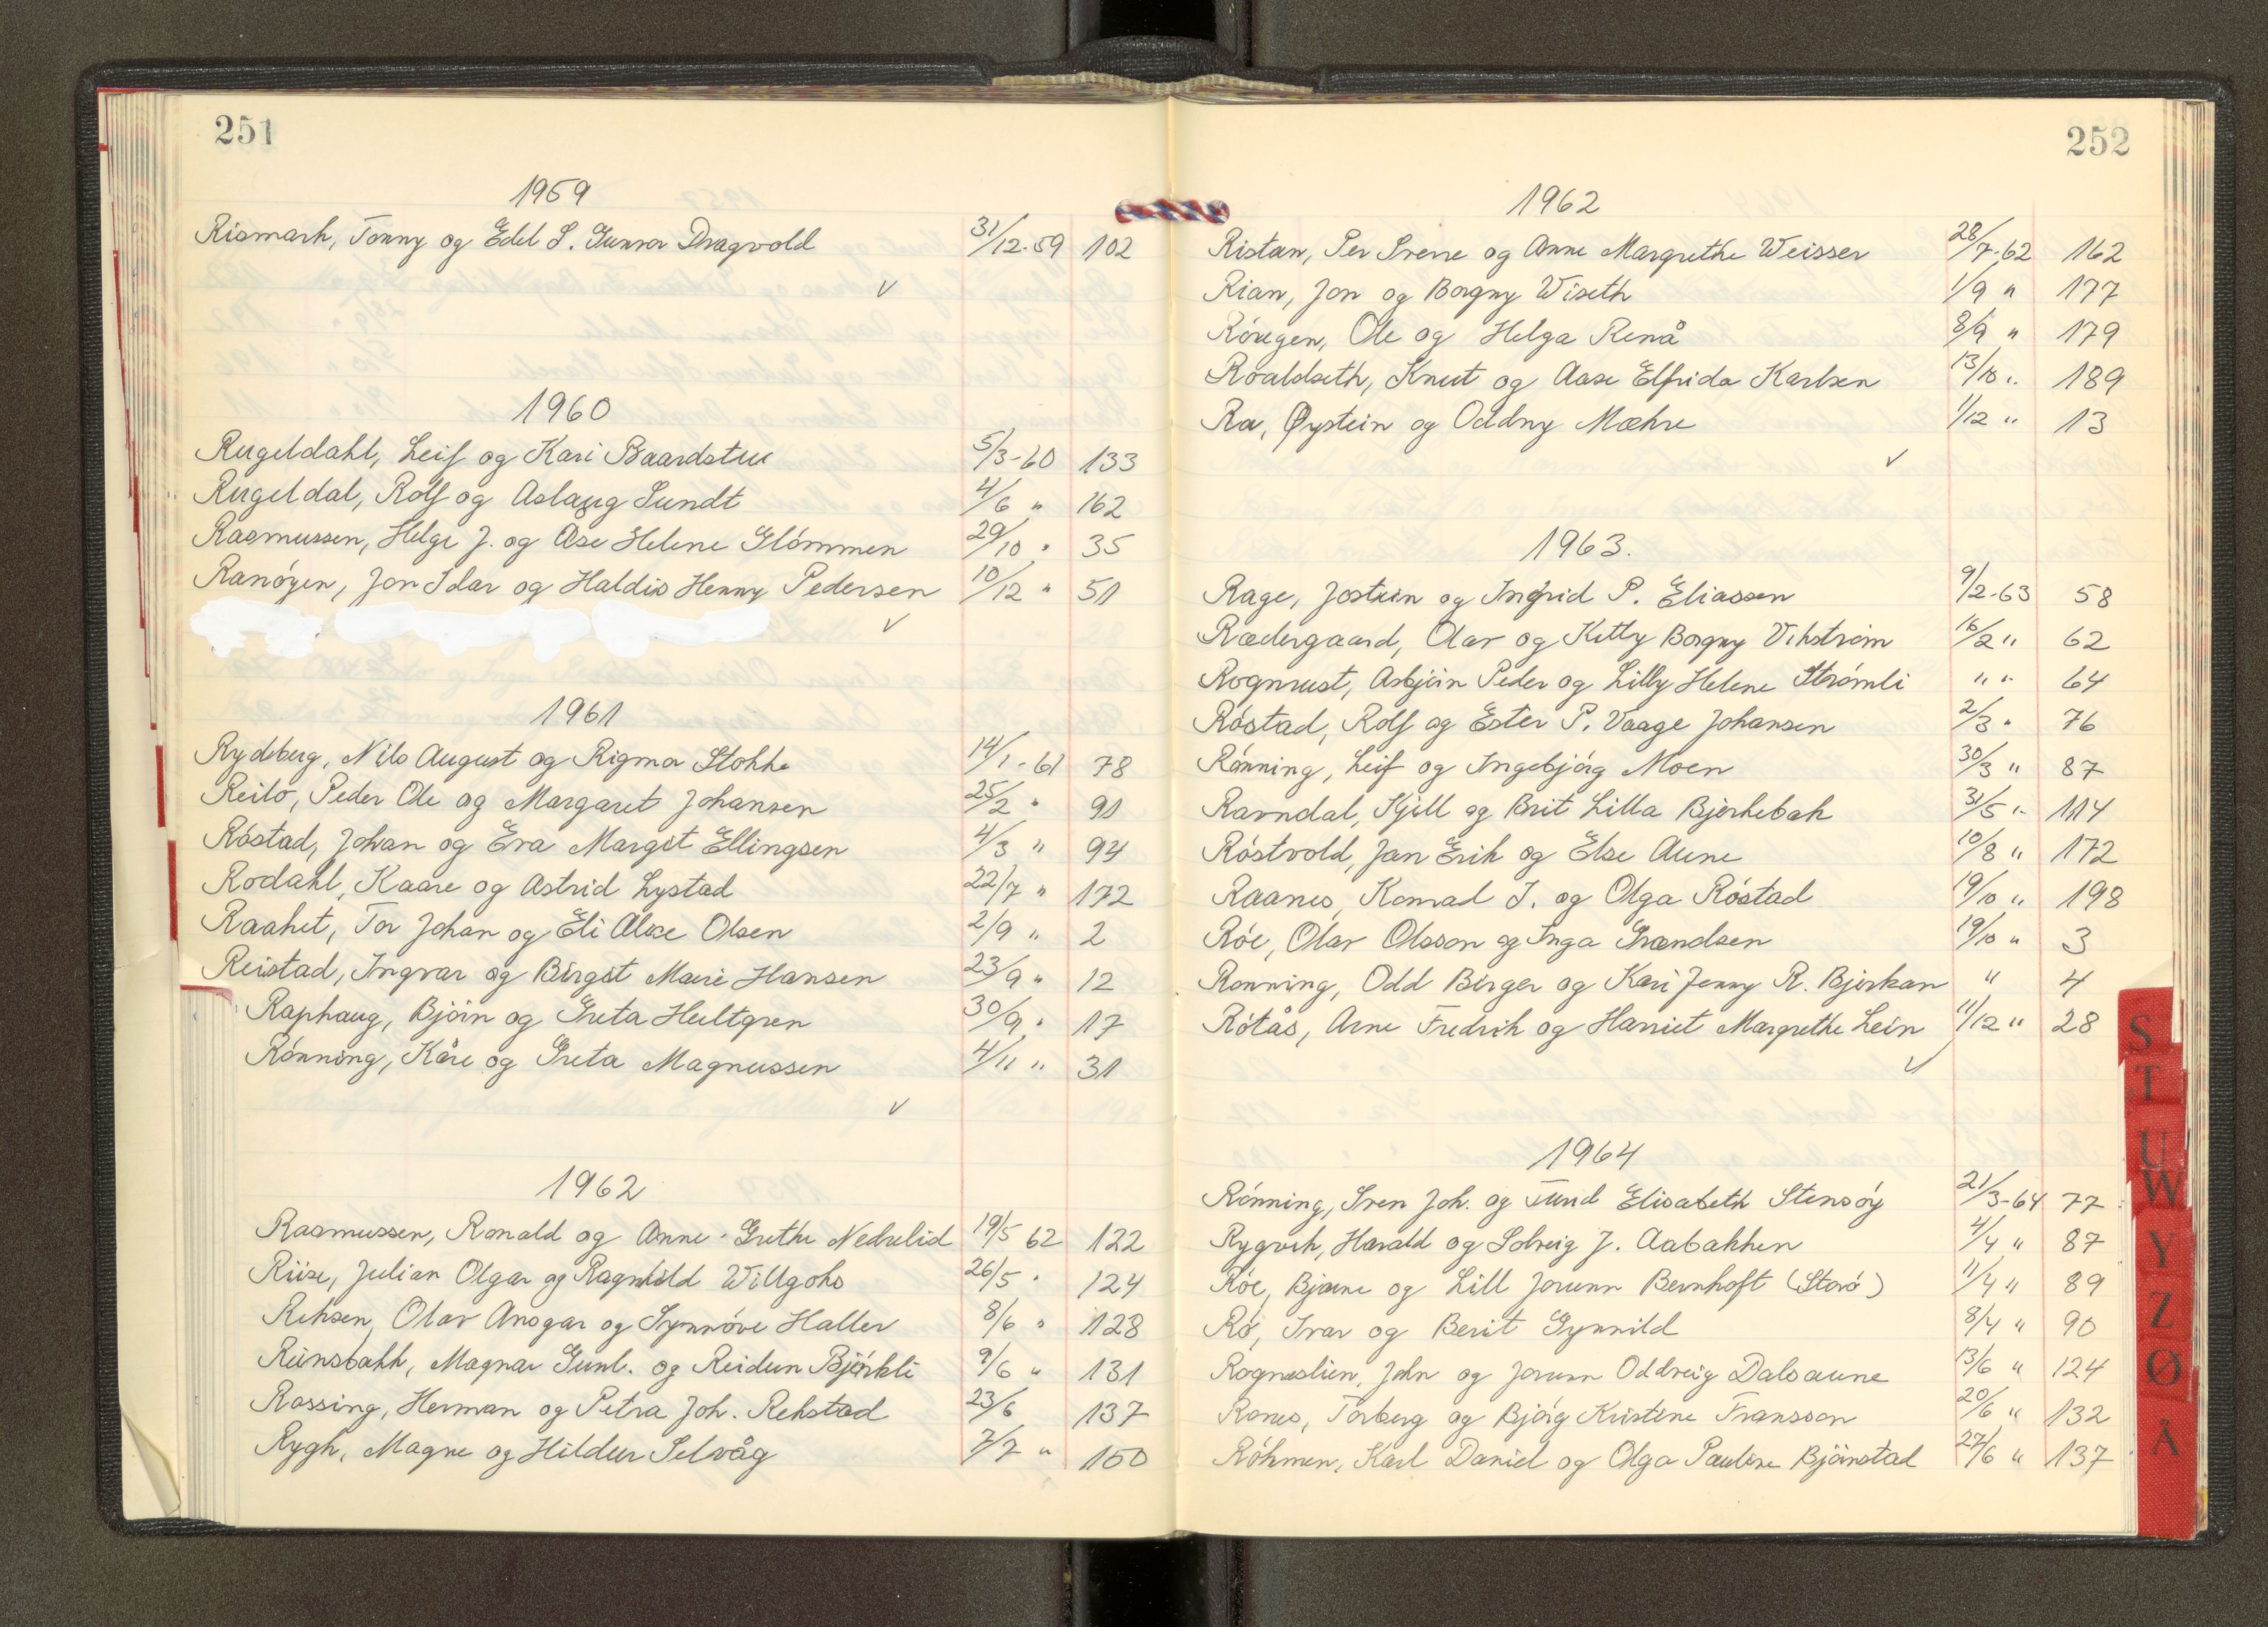 251
1959
Rismark, Tonny og Edel S. Gunvor Dragvold 31/12-59 102
1960
Rugeldahl, Leif og Kari Baardstu 5/3-60 133
Rugeldal, Rolf og Aslaug Sundt 4/6 " 162
Rasmussen, Helge J. og Åse Helene Glömmen 29/10 " 35
Ranöyen, Jon Idar og Haldis Henny Pedersen 10/12 " 51
1961
Rydberg, Nils August og Rigmor Stokke 14/1-61 78
Reilo, Peder Ole og Margaret Johansen 25/2 " 91
Röstad, Johan og Eva Margot Ellingsen 4/3 " 94
Rodahl, Kaare og Astrid Lystad 22/7 " 172
Raaket, Tor Johan og Eli Alice Olsen 2/9 " 2
Reistad, Ingvar og Birgit Marie Hansen 23/9 " 12
Raphaug, Björn og Greta Hultgren 30/9 " 17
Rönning, Kåre og Greta Magnussen 4/11 " 31
1962
Rasmussen, Ronald og Anne-Grethe Nedrelid 19/5 62 122
Riise, Julian Olgar og Ragnhild Willgohs 26/5 " 124
Reksen, Olav Ansgar og Synnöve Haller 8/6 " 128
Reinsbakk, Magnar Gunl. og Reidun Björkli 9/6 " 131
Rossing, Herman og Petra Joh. Rekstad 23/6 137
Rygh, Magne og Hildur Selvåg 7/7 " 150
252
1962
Ristan, Per Sverre og Anne Margrethe Weisser 28/7-62 162
Rian, Jon og Borgny Wiseth 1/9 " 177
Röragen, Ole og Helga Renå 8/9 " 179
Roaldseth, Knut og Aase Elfrida Karlsen 13/10 " 189
Ra, Øystein og Oddny Mæhre 1/12 " 13
1963.
Rage, Jostein og Ingrid P. Eliassen 9/2-63 58
Rædergaard, Olav og Kitty Borgny Vikström 16/2 " 62
Rognrust, Asbjörn Peder og Lilly Helene Strömli " " 64
Röstad, Rolf og Ester P. Vaage Johansen 2/3 " 76
Rönning, Leif og Ingebjörg Moen 30/3 " 87
Ravndal, Kjell og Brit Lilla Bjerkebak 31/5 " 114
Röstvold, Jan Erik og Else Aune 10/8 " 172
Raanes, Konrad J. og Olga Röstad 19/10 " 198
Röe, Olav Olsson og Inga Svendsen 19/10 " 3
Ronning, Odd Birger og Kari Jenny R. Bjerkan " 4
Rötås, Arne Fredrik og Harriet Margrethe Lein 11/12 " 28
1964
Rönning, Sven Joh. og Turid Elisabeth Stensöy 21/3-64 77
Rygvik, Harald og Solveig J. Aabakken 4/4 " 87
Röe, Bjarne og Lill Jorunn Bernhoft (Storö) 11/4 " 89
Rö, Ivar og Berit Gynnild 8/4 " 90
Rogneslien, John og Jorunn Oddveig Dalsaune 13/6 " 124
Rones, Torberg og Björg Kristine Fransson 20/6 " 132
Röhmen, Karl Daniel og Olga Pauline Björnstad 27/6 " 137
S
T
U
W
Y
Z
Ø
Å